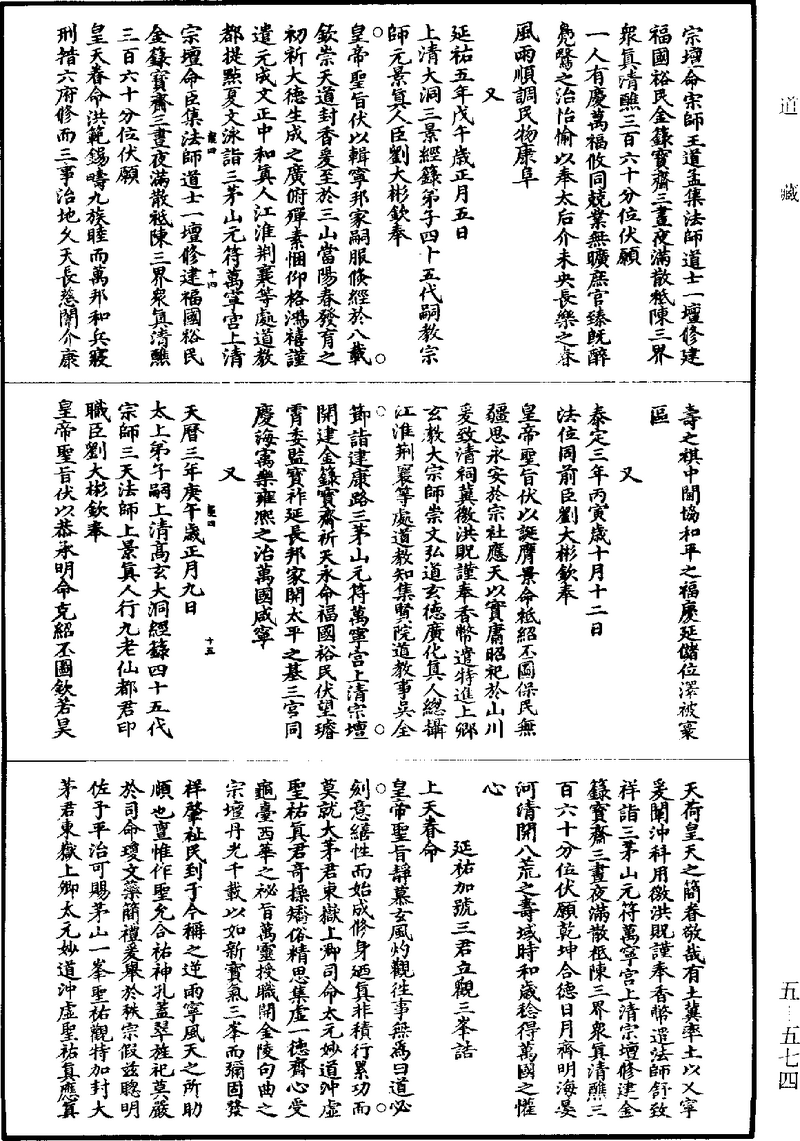 道藏
五—五七四
宗壇命宗師王道孟集法師道士一壇修建
福國裕民金籙寶齋三晝夜滿散祗陳三界
衆真清醮三百六十分位伏願
一人有慶萬福攸同兢業無曠庶官臻既醉
鳧鷖之治怡愉以奉太后介未央長樂之春
風雨順調民物康阜
又
延祐五年戊午歲正月五日
上清大洞三景經籙弟子四十五代嗣教宗
師元景真人臣劉大彬欽奉
皇帝聖旨伏以輯寧邦家嗣服倏經於八載
欽崇天道封香爰至於三山當陽春發育之
初祈大德生成之廣俯殫素悃仰格鴻禧謹
遣元成文正中和真人江淮荆襄等處道教
都提點夏文泳詣三茅山元符萬寧宮上清
宗壇命臣集法師道士一壇修建福國裕民
金籙寶齋三晝夜滿散祗陳三界衆真清醮
三百六十分位伏願
皇天眷命洪範錫疇九族睦而萬邦和兵寢
刑措六府修而三事治地久天長慈闈介康
壽之祺中閫協和平之福慶延儲位澤被寰
區
又
泰定三年丙寅歲十月十二日
法位同前臣劉大彬欽奉
皇帝聖旨伏以誕膺景命祗紹丕圖保民無
疆思永安於宗社應天以實肅昭祀於山川
爰致清祠冀徼洪貺謹奉香幣遣特進上卿
玄教大宗師崇文弘道玄德廣化真人緫攝
江淮荆襄等處道教知集賢院道教事吳全
節詣建康路三茅山元符萬寧宮上清宗壇
開建金籙寶齋祈天永命福國裕民伏望璿
霄委監寶祚延長邦家開太平之基三宮同
慶海寓樂雍熙之治萬國咸寧
又
天曆三年庚午歲正月九日
太上弟子嗣上清高玄大洞經籙四十五代
宗師三天法師上景真人行九老仙都君印
職臣劉大彬欽奉
皇帝聖旨伏以恭承明命克紹丕圖欽若昊
天荷皇天之簡眷敬哉有土冀率土以乂寧
爰闡沖科用徼洪貺謹奉香幣遣法師舒致
祥詣三茅山元符萬寧宮上清宗壇修建金
籙寶齋三晝夜滿散祗陳三界衆真清醮三
百六十分位伏願乾坤合德日月齊明海晏
河清開八荒之壽域時和歲稔得萬國之懽
心
延祐加號三君立觀三峯誥
上天眷命
皇帝聖旨靜慕玄風灼觀徃事無爲曰道必
刻意繕性而始成修身廼真非積行累功而
莫就大茅君東嶽上卿司命太元妙道沖虛
聖祐真君奇操矯俗精思集虛一德齊心受
龜臺西華之祕旨萬靈授職開金陵句曲之
宗壇丹光千載以如新寶氣三峯而彌固發
祥肇祉民到于今稱之逆雨寧風天之所助
順也亶惟作聖允合祐神孔蓋翠旌祀莫嚴
於司命瓊文藥簡禮爰舉於秩宗假兹聰明
佐予平治可賜茅山一峯聖祐觀特加封大
茅君東嶽上卿太元妙道沖虛聖祐真應真